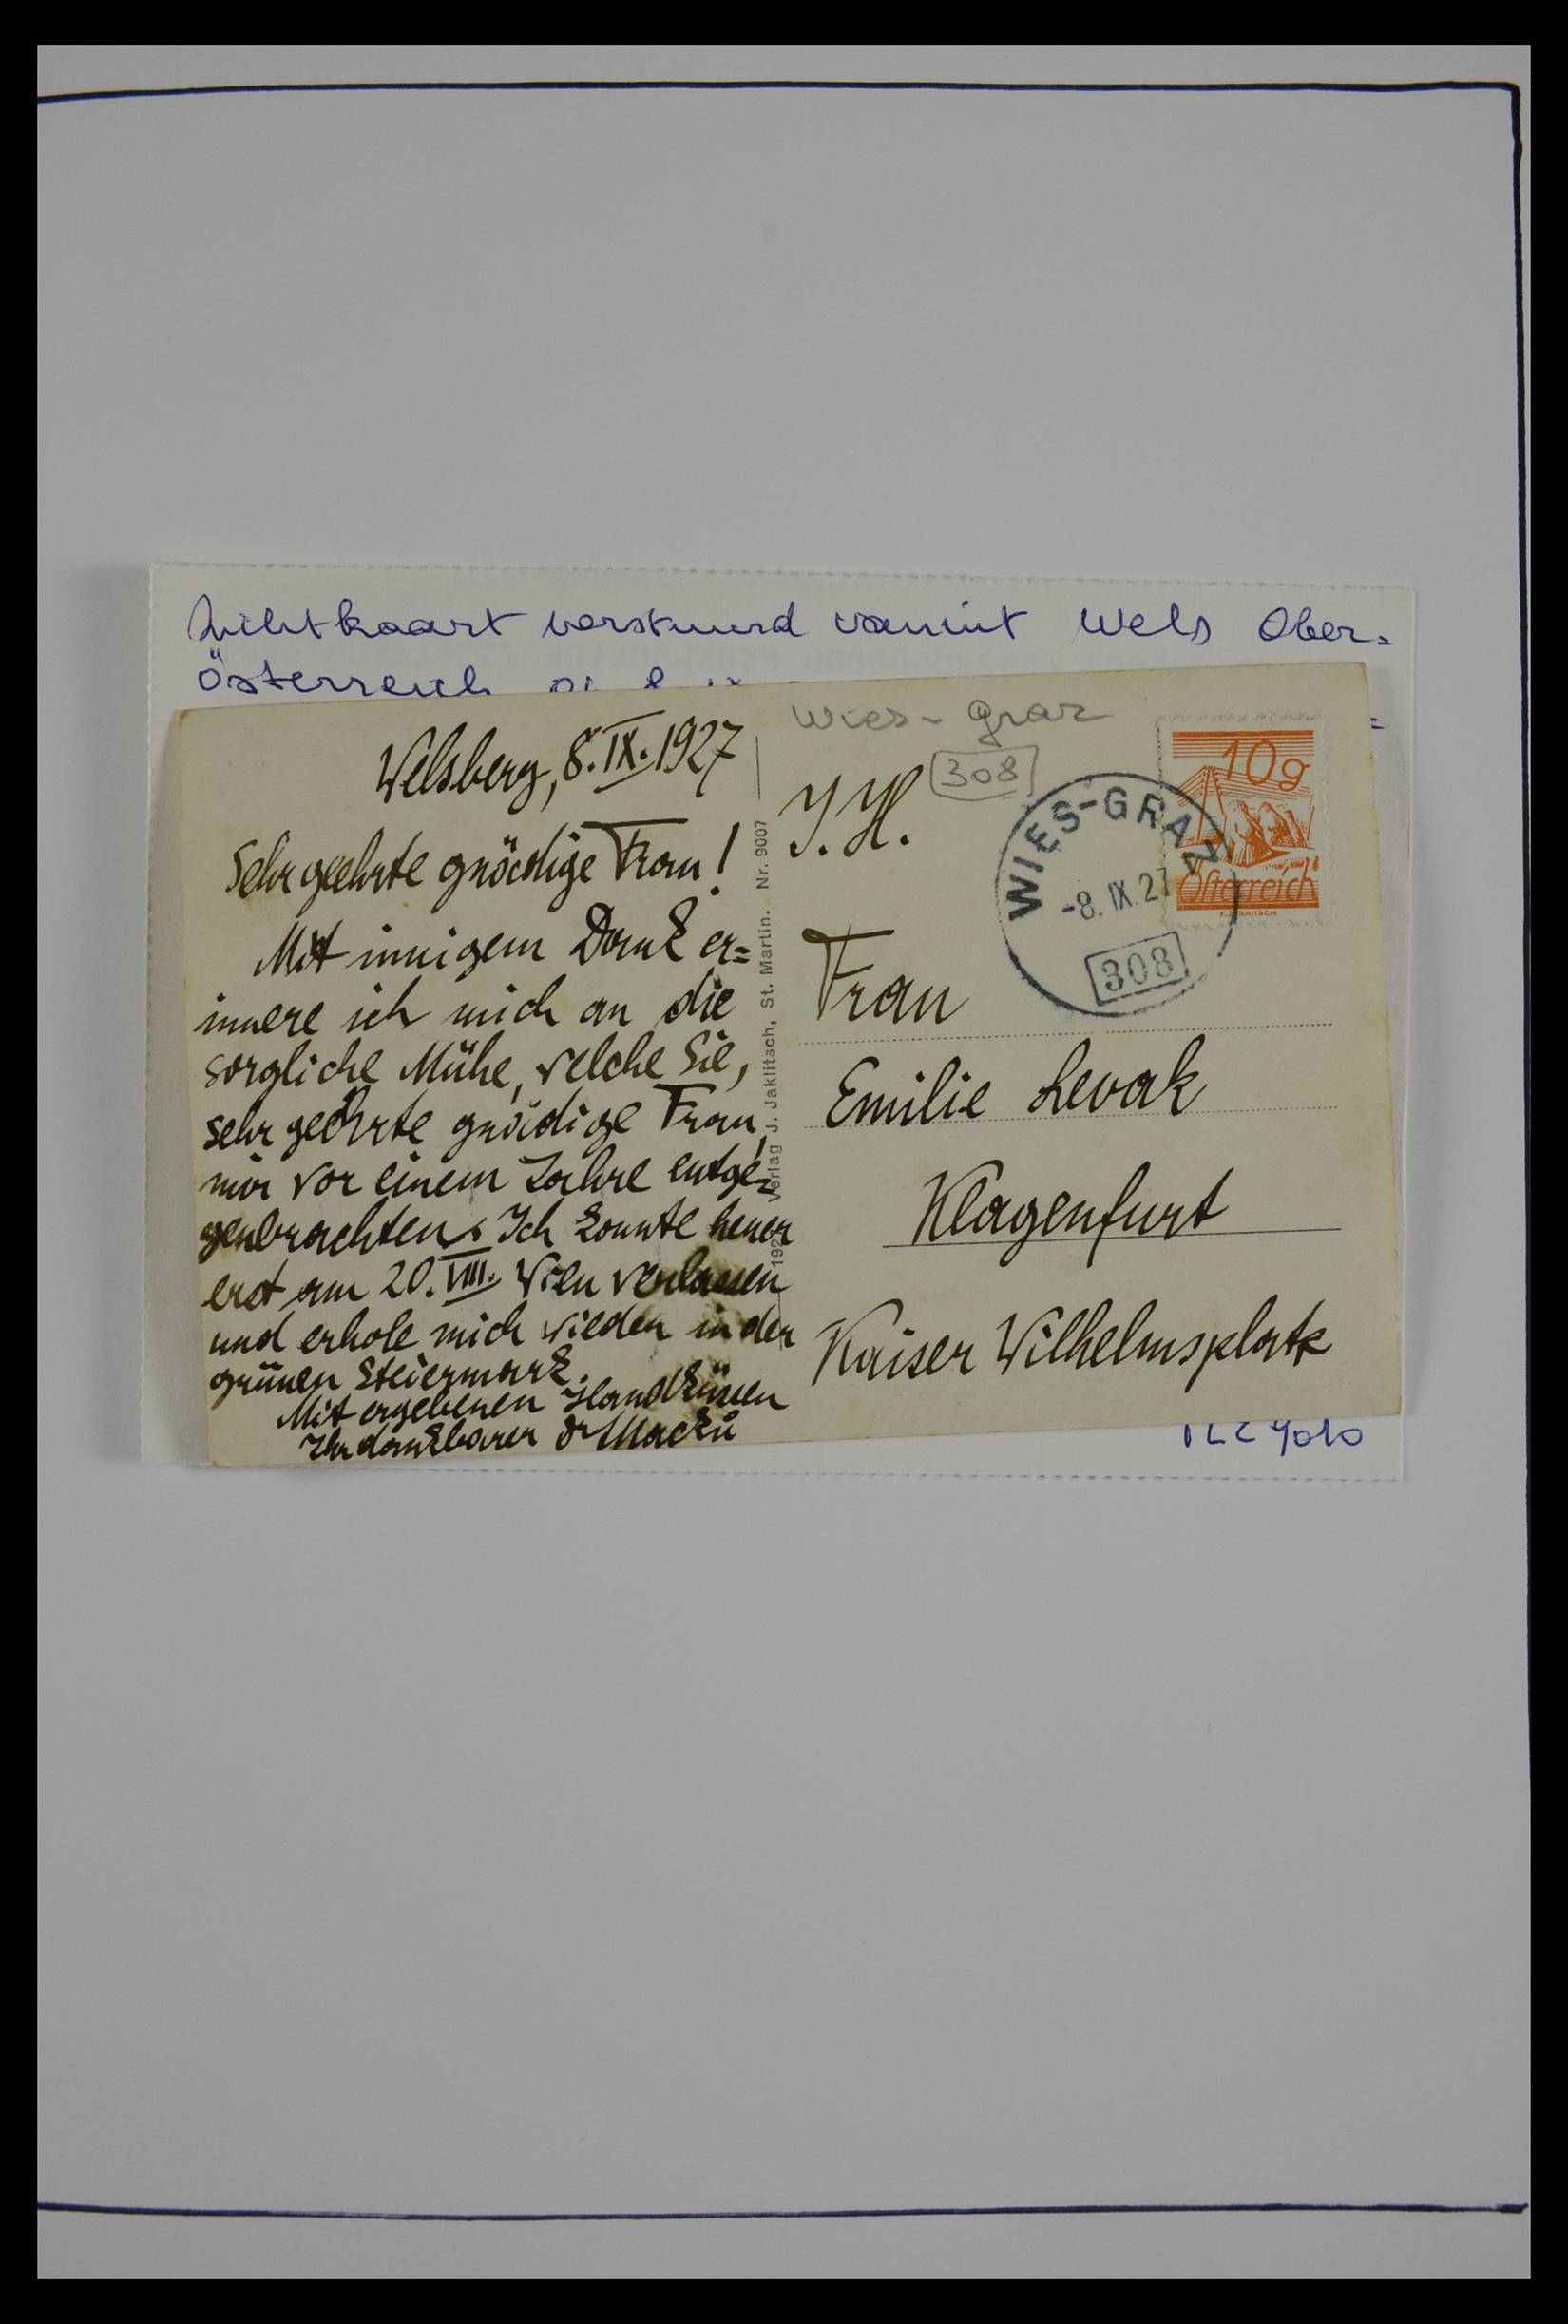 Zichtkaart verstuurd vanuit Wels Ober=
Österreich
Wies - Graz
308
Welsberg, 8. IX. 1927
Sehr geehrte gnädige Frau!
Mit innigem Dank er=
innere ich mich an die
sorgliche Mühe, welche Sie,
sehr geehrte gnädige Frau,
mir vor einem Jahre entge=
genbrachten. Ich konnte heuer
erst am 20. VIII. Wien verlassen
und erhole mich wieder in der
grünen Steiermark.
Mit ergebenen Handküssen
Ihr dankbarer Dr Macků
Verlag J. Jaklitsch, St. Martin. Nr. 9007
I. H.
10g
Österreich
WIES-GRAZ
-8. IX. 27
308
Frau
Emilie Levak
Klagenfurt
Kaiser Wilhelmsplatz